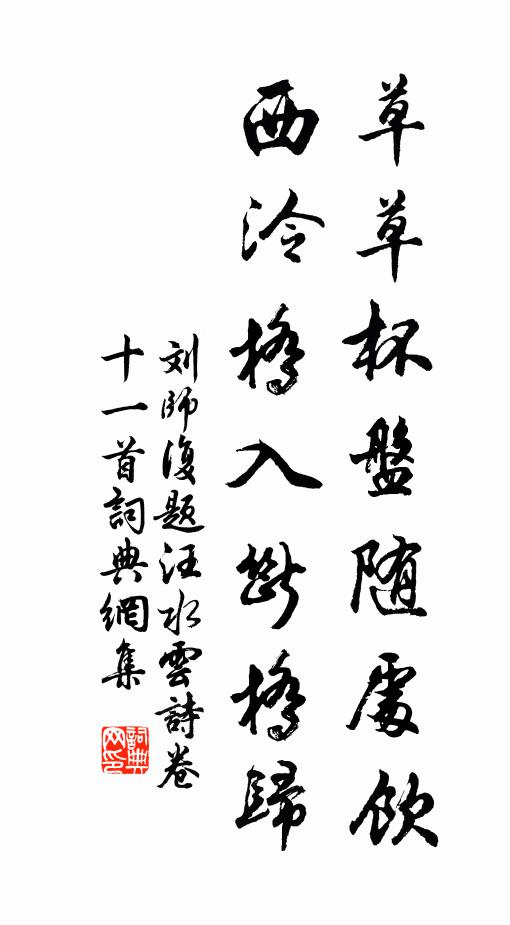 草草杯盤随處飲
西泠橋入断橋歸
刘師復题汪水雲詩卷
十一首詞典網集
詞典网印